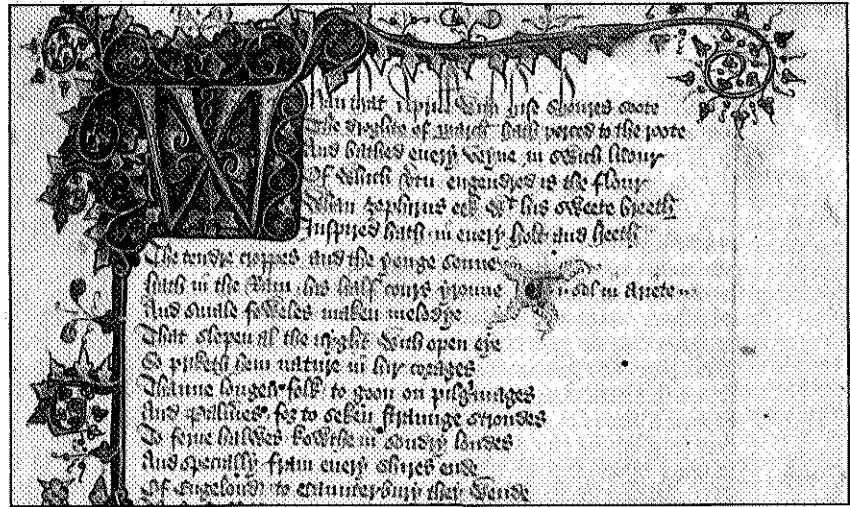 Whan that Aprill with hise shoures soote
The droghte of March hath perced to the roote
And bathed euery veyne in swich licour
Of which vertu engendred is the flour
Whan zephirus eek wt his sweete breeth
Inspired hath in euery holt and heeth
The tendre croppes and the yonge sonne
hath in the Ram his half cours yronne sol in Ariete
And smale foweles maken melodye
That slepen al the nyght with open eye
So priketh hem nature in hir corages
Thanne longen folk to goon on pilgrimages
And Palmeres for to seken straunge strondes
To ferne halwes kowthe in sondry londes
And specially fram euery shires ende
Of Engelond to Caunterbury they wende